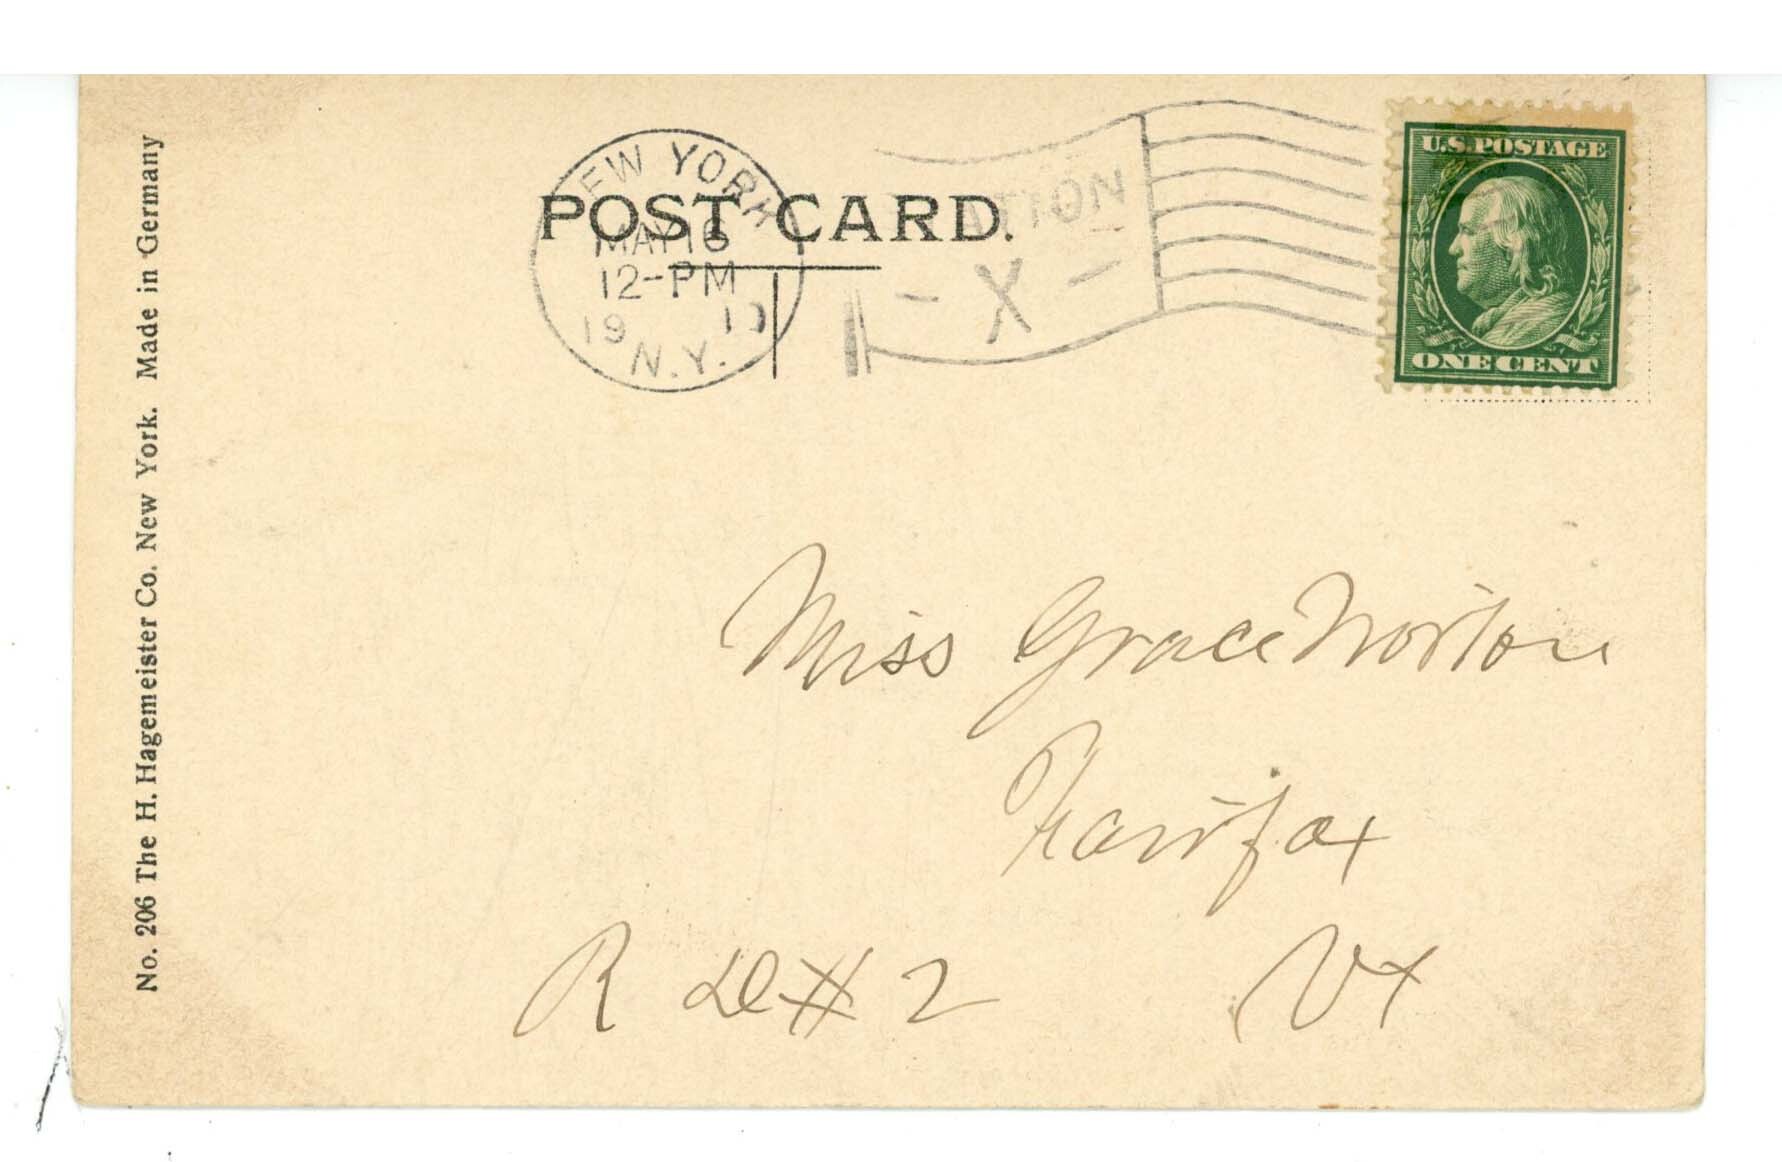 NEW YORK
MAY 16
12-PM
19 10
N.Y.
STATION
- X -
U.S. POSTAGE
ONE CENT
POST CARD.
Miss Grace Norton
Fairfax
R D # 2 Vt
No. 206 The H. Hagemeister Co. New York. Made in Germany